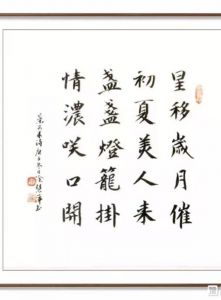 星移歲月催
初夏美人来
盞盞燈籠掛
情濃咲口開